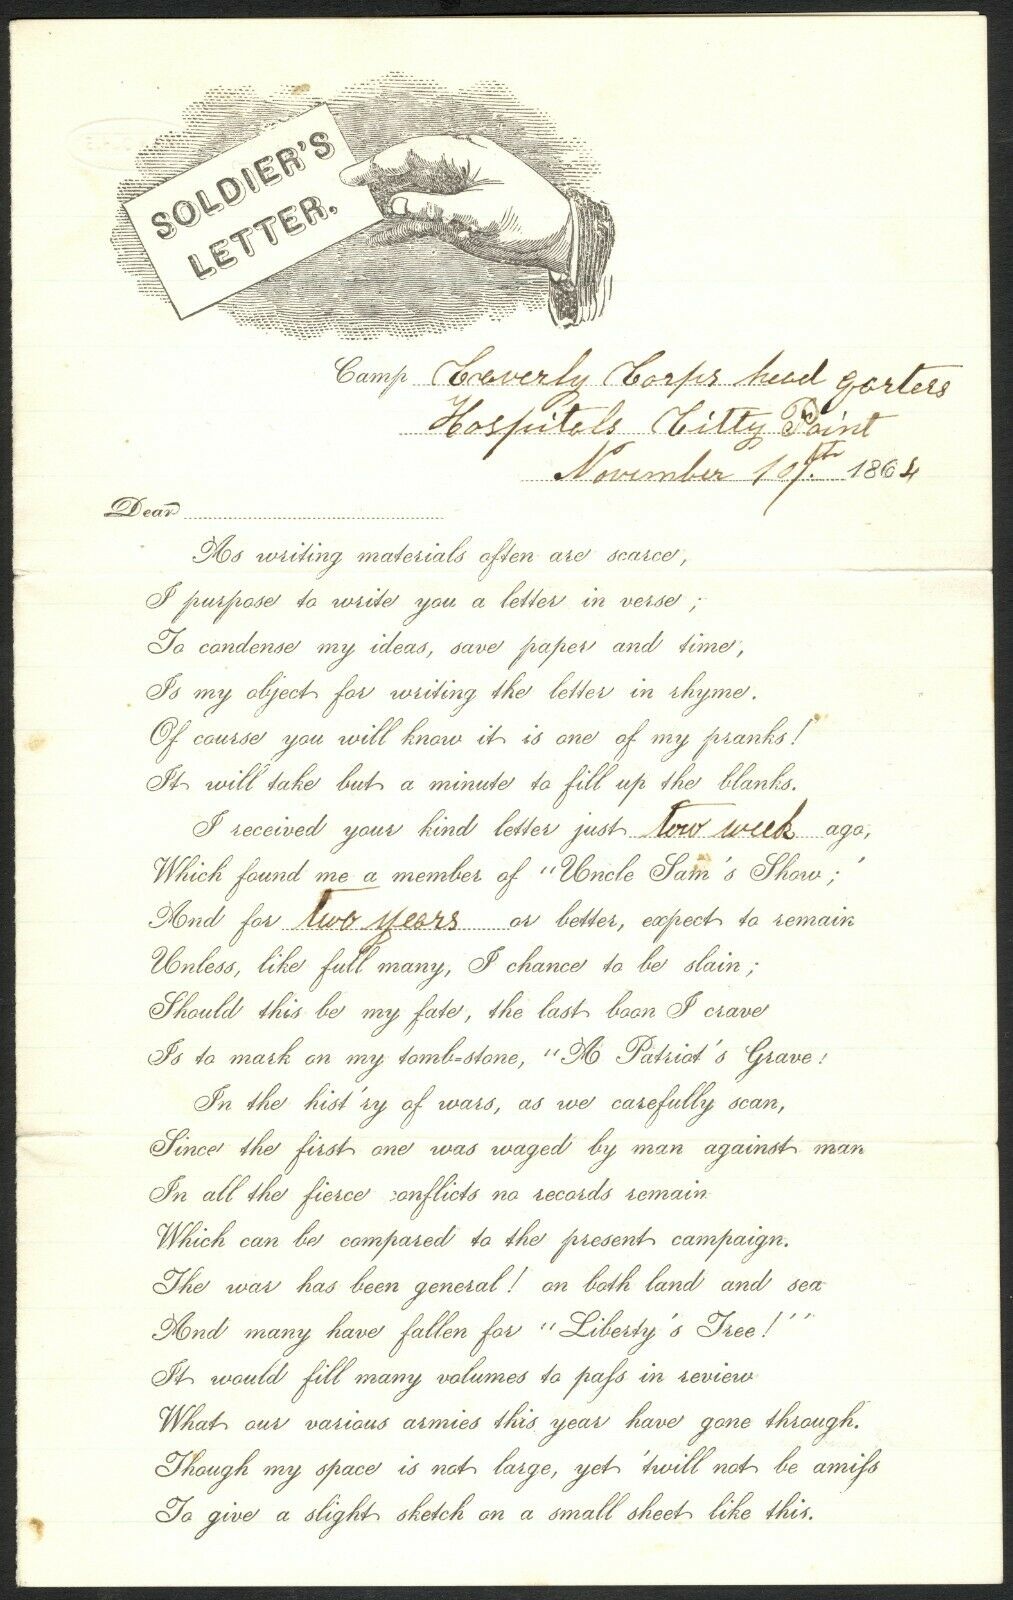 SOLDIER'S
LETTER.
Camp Caverly Corps head qorters
Hospitals Citty Point
November 10th. 1864
Dear
As writing materials often are scarce,
I purpose to write you a letter in verse;
To condense my ideas, save paper and time,
Is my object for writing the letter in rhyme.
Of course you will know it is one of my pranks!
It will take but a minute to fill up the blanks.
I received your kind letter just tow week ago,
Which found me a member of "Uncle Sam's Show;'
And for two years or better, expect to remain
Unless, like full many, I chance to be slain;
Should this be my fate, the last boon I crave
Is to mark on my tomb-stone, "A Patriot's Grave!
In the hist'ry of wars, as we carefully scan,
Since the first one was waged by man against man
In all the fierce conflicts no records remain
Which can be compared to the present campaign.
The war has been general! on both land and sea
And many have fallen for "Liberty's Tree!''
It would fill many volumes to paſs in review
What our various armies this year have gone through.
Though my space is not large, yet 'twill not be amiſs
To give a slight sketch on a small sheet like this.